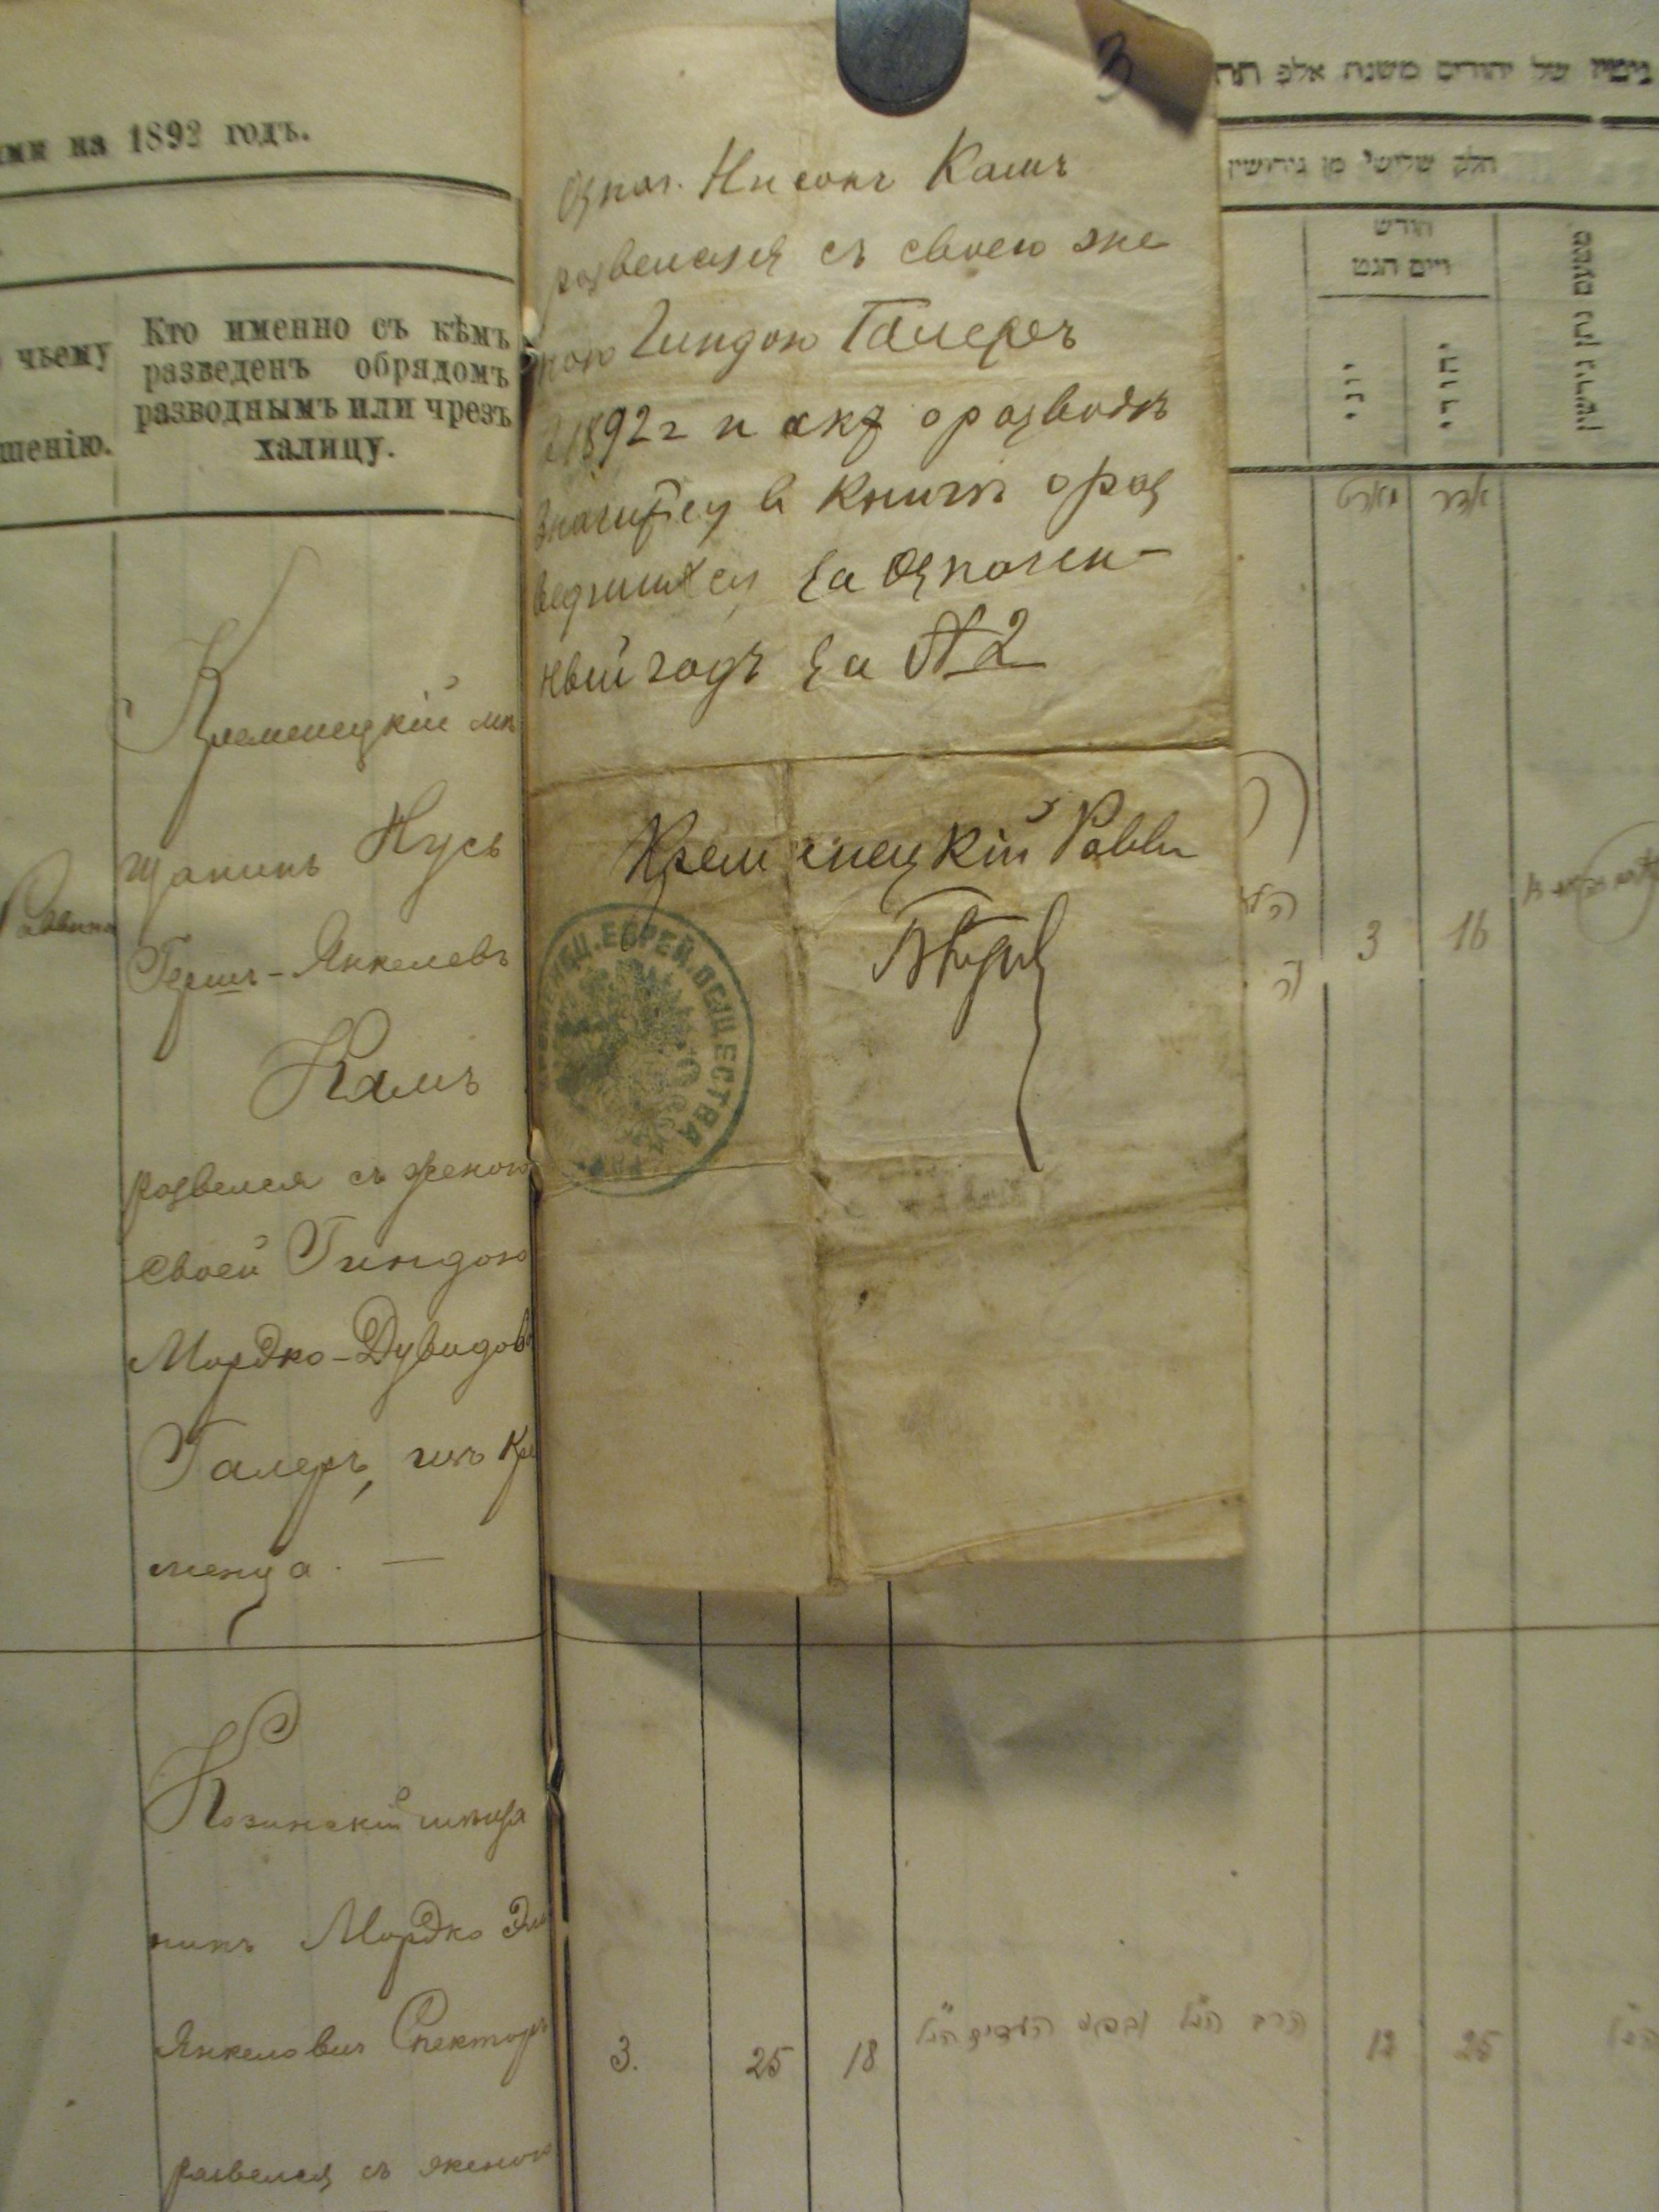 ими на 1892 годъ.
чьему
шенію.
Кто именно съ кѣмъ
разведенъ обрядомъ
разводнымъ или чрезъ
халицу.
Кременецкій мѣ
щанинъ Нусь
Гершъ-Янкелевъ
Камъ
развелся съ женою
своей Гиндою
Мордко-Дувидов
Галеръ, изъ Кре
менца. —
Козинскій мѣща
нинъ Мордко
Янкеловичъ Спекторъ
развелся съ женою
3
Означ. Нисонъ Камъ
развелся съ своею же
ною Гиндою Галеръ
1892 г и актъ о разводѣ
значится въ книгѣ о раз
ведшихся за означен-
ный годъ за № 2
Кременецкій Равви
ЕВРЕЙ. ОБЩЕСТВА
גיטין של יהודים משנת אלפ תת
חלק שלישי מן גירושין
חודש
ויום הגט
יוני
יהודי
מארט
אדר
3
16
3.
25
18
הרב הנ"ל
12
25
הנ"ל